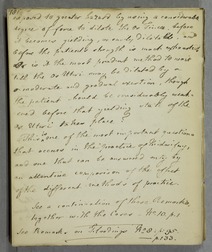 exposed to greater hazard by using a considerable
degree of force to dilate the Os Tincæ before
it becomes yielding, or easily dilatable, and
before the patient's strength is much exhausted
Or is it the most prudent method to wait
till the Os Uteri may be dilated by a
moderate and gradual exertion, though
the patient should be considerably weak-
ened before that yielding state of the
Os Uteri takes place?
This is one of the most important questions
that occurs in the practice of Midwifery,
and one that can be answered only by
an attentive comparison of the effect
of the different methods of practice.
See a continuation of these Remarks,
together with the Cases
See Remarks on Floodings
p. 133.